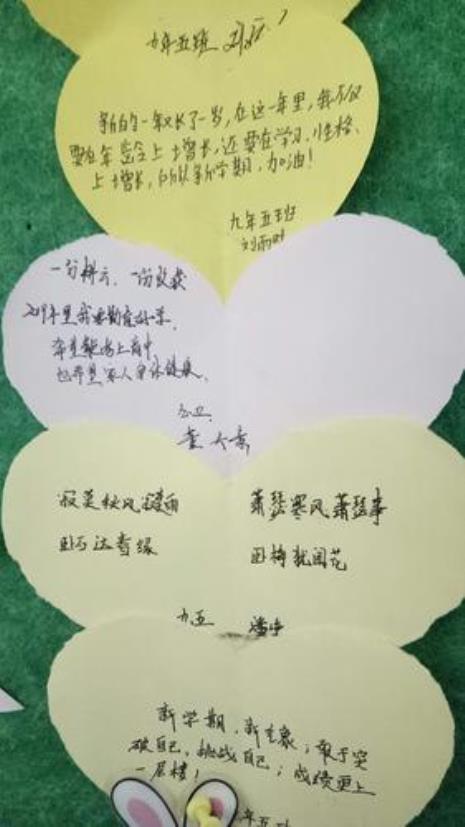 九年五班
新的一年又长了一岁,在这一年里,我不仅
要在年龄上增长,还要在学习、性格、
上增长,所以新学期,加油!
九年五班
刘雨
一分耕云,一份收获
2019年里我要勤奋好学,
希望能考上高中
也希望家人身体健康。
九五
董
寂 秋风 雨
萧瑟寒风萧瑟事
卧 达
因梅就闻花
九五 潘
新学期,新气象;敢于突
破自己,挑战自己;成绩更上
一层楼!
年五